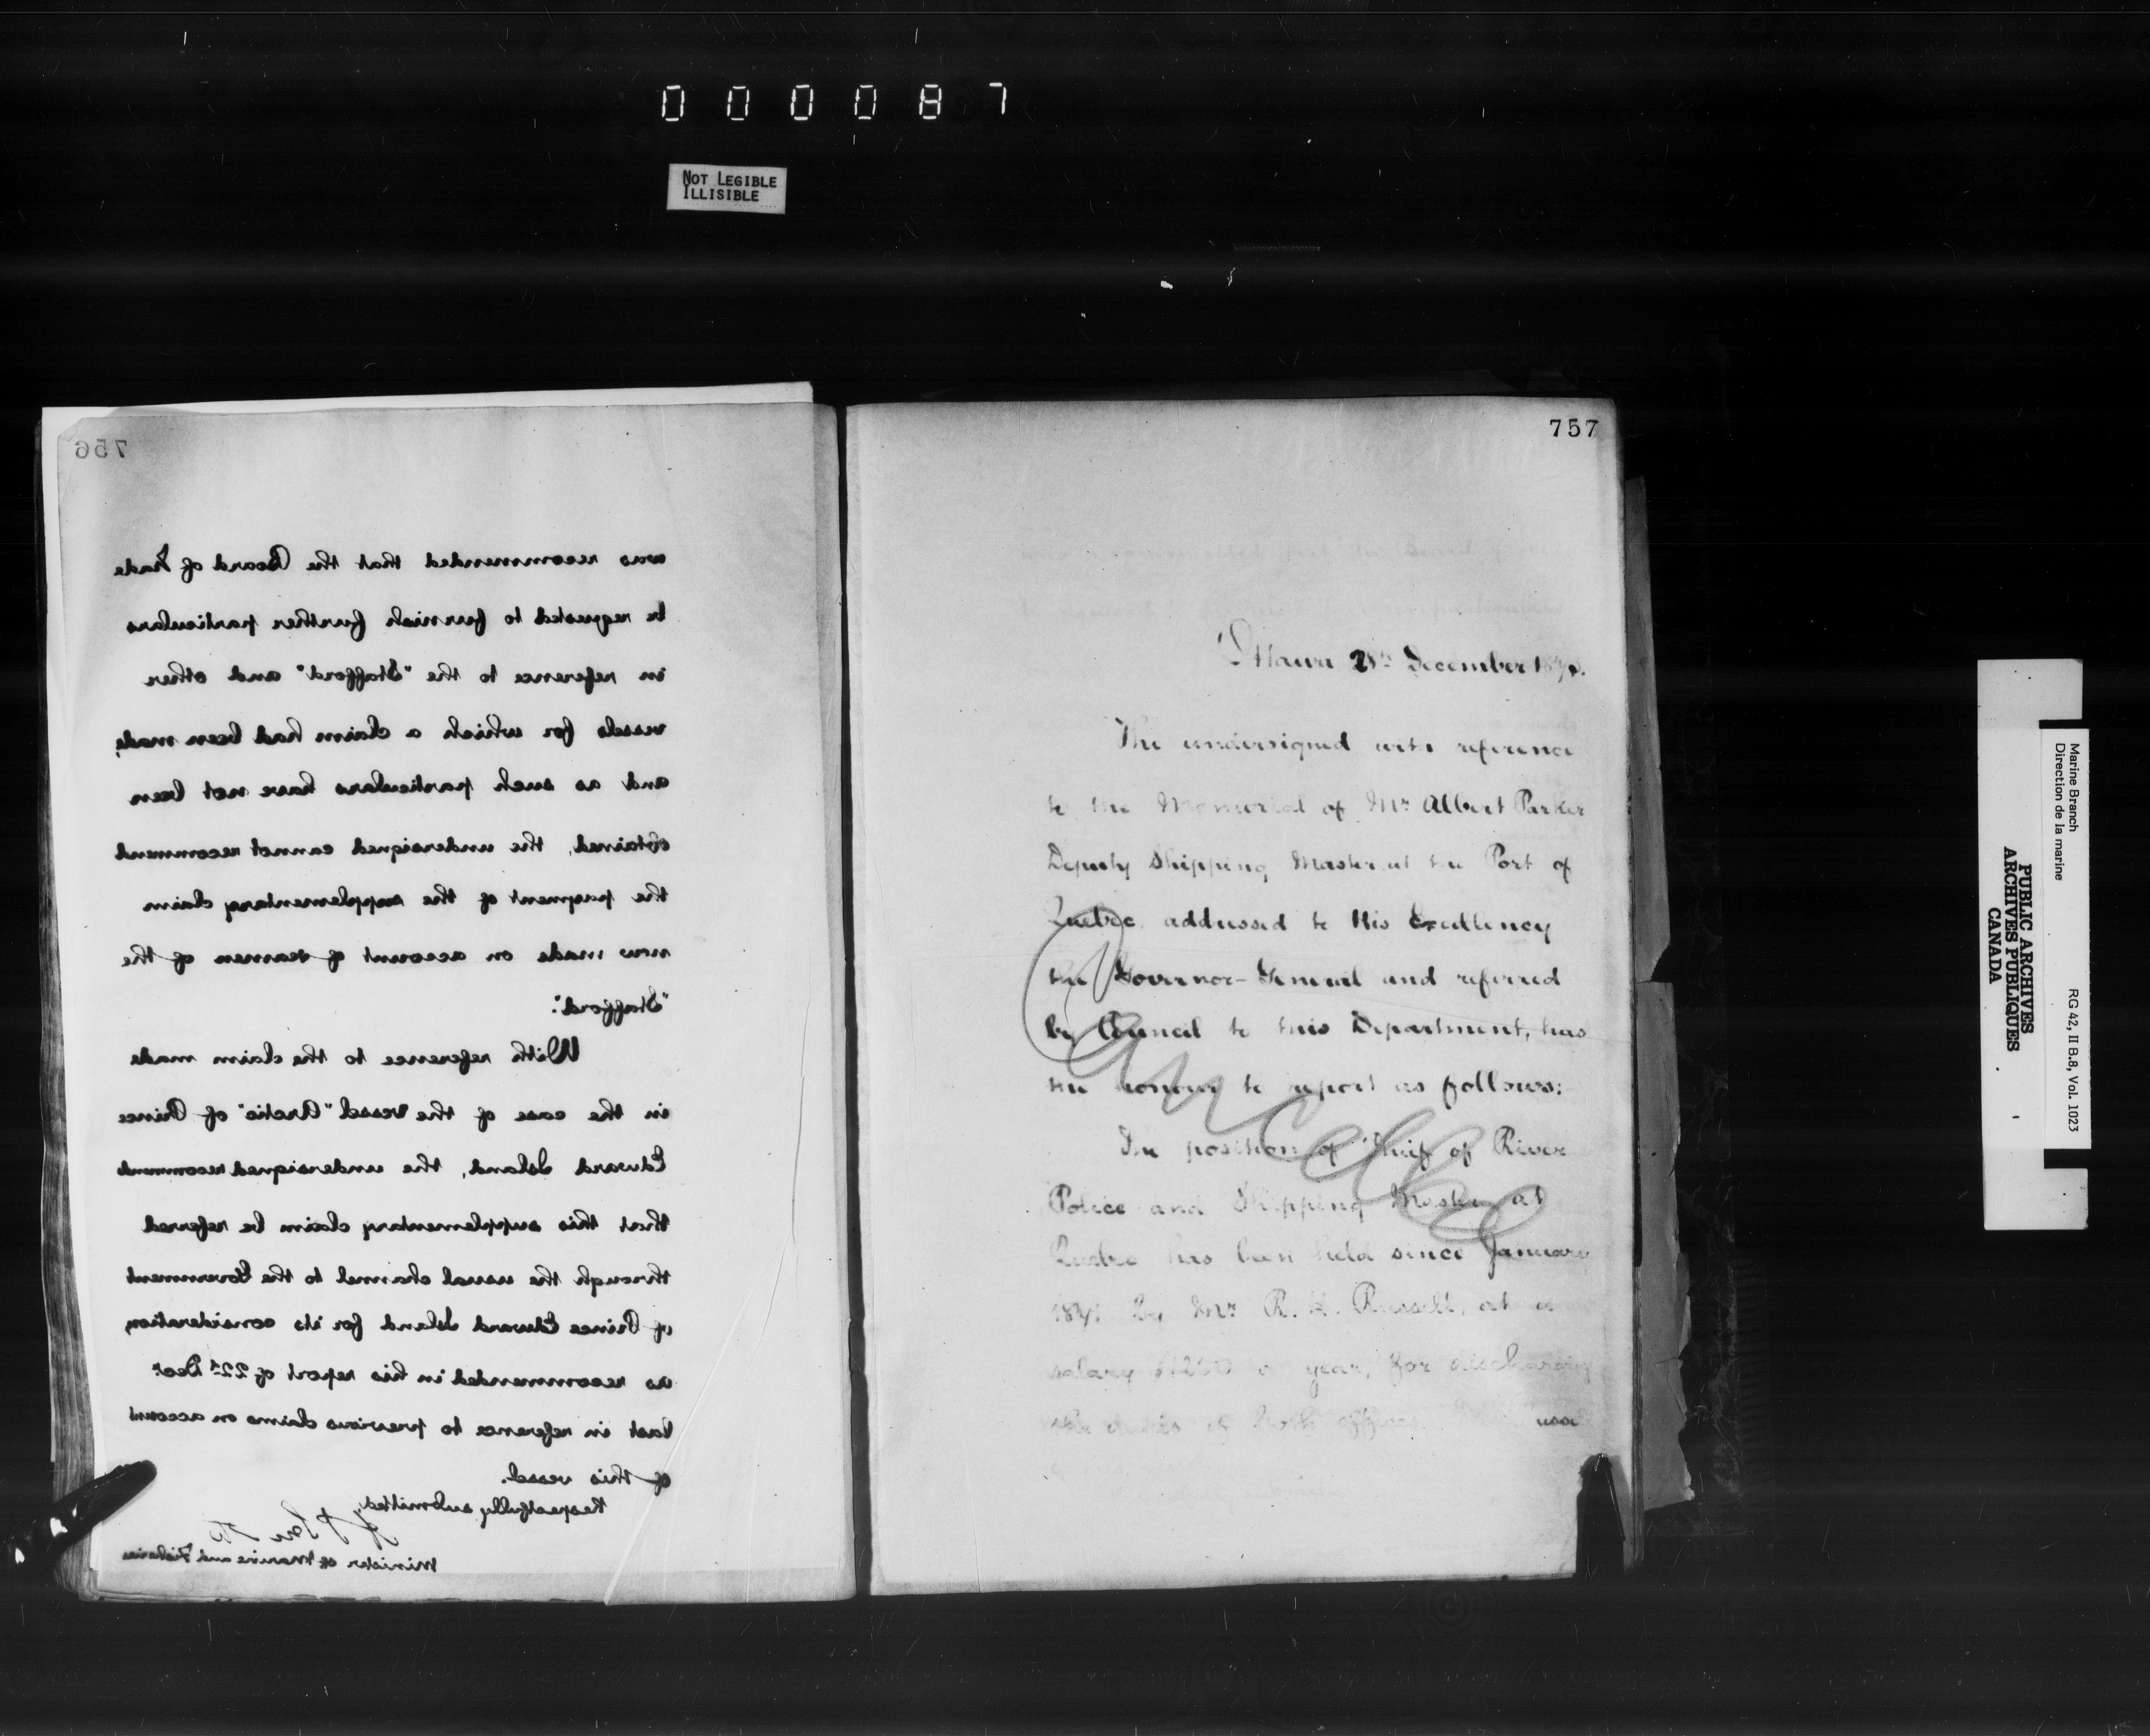 000087
NOT LEGIBLE
ILLISIBLE
756
was recommended that the Board of Trade
be requested to furnish further particulars
in reference to the "Stafford" and other
vessels for which a claim had been made,
and as such particulars have not been
obtained, the undersigned cannot recommend
the payment of the supplementary claim
now made on account of seamen of the
"Stafford".
With reference to the claim made
in the case of the vessel "Arctic" of Prince
Edward Island, the undersigned recommends
that this supplementary claim be referred
through the usual channel to the Government
of Prince Edward Island for its consideration,
as recommended in his report of 22d Decr
last in reference to previous claims on account
of this vessel.
Respectfully submitted,
Minister of Marine and Fisheries
757
Ottawa December
The undersigned with reference
to the Memorial of Mr Albert Parker
Deputy Shipping Master at the Port of
Quebec, addressed to His Excellency
the Governor-General and referred
by Council to this Department, has
the honour to report as follows:
The position of Chief of River
Police and Shipping Master at
Quebec has been held since January
by Mr R. H. Russell, at a
salary $1200 a year, for discharging
the duties of both offices
Cancelled
Marine Branch
Direction de la marine
RG 42, II B.8, Vol. 1023
PUBLIC ARCHIVES
ARCHIVES PUBLIQUES
CANADA